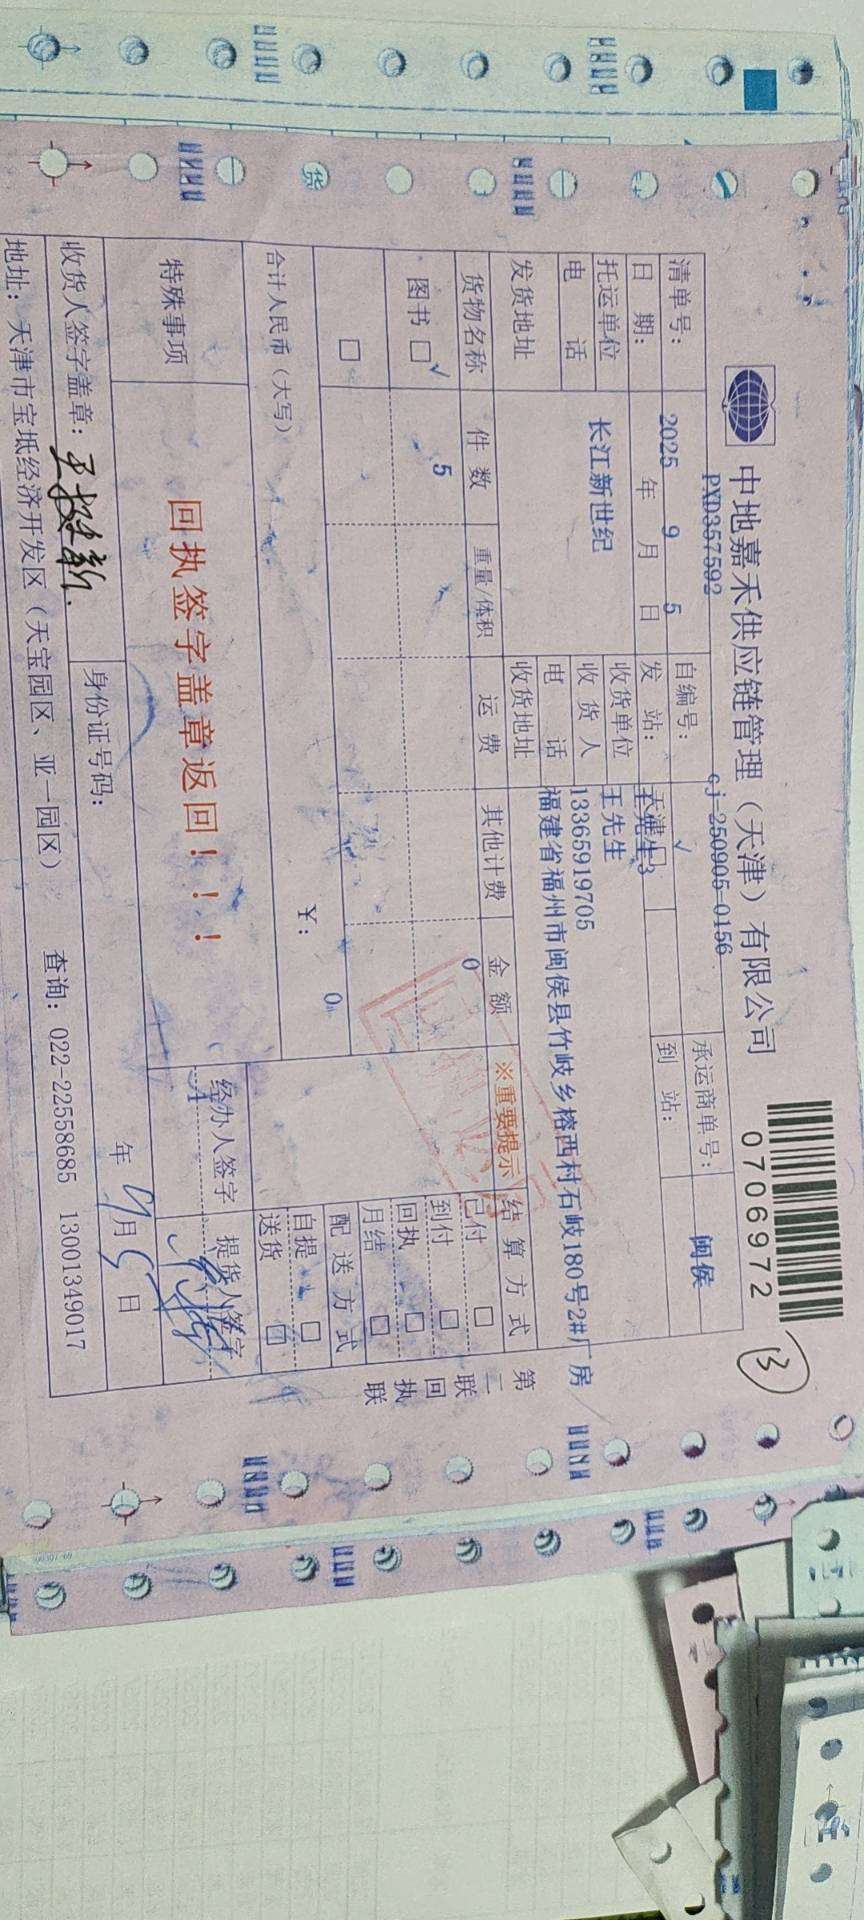 中地嘉禾供应链管理（天津）有限公司
0706972
13
清单号： PXD357592 自编号： cj-250905-0156 承运商单号：
日 期： 2025 年 9 月 5 日 发 站： 天津 √ 到 站： 闽侯
托运单位 长江新世纪 收货单位 王先生3
收 货 人 王先生
电 话 电 话 13365919705
发货地址 收货地址 福建省福州市闽侯县竹岐乡榕西村石岐180号2#厂房
货物名称 件 数 重量/体积 运 费 其他计费 金 额 ※重要提示 结 算 方 式
图书 □ √ 5 0 已付 □
到付 □
□ 回执 □
月结 □
合计人民币（大写） ￥： 0 配 送 方 式
自提 □
送货 □
特殊事项 回执签字盖章返回！！！ 经办人签字 提货人签字
收货人签字盖章： 身份证号码： 年 9 月 5 日
地址：天津市宝坻经济开发区（天宝园区、亚一园区） 查询：022-22558685 13001349017
第二联 回执联
货